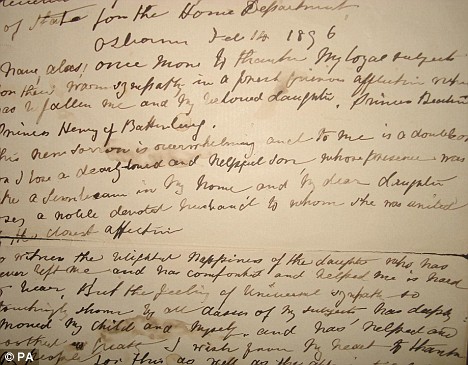 of State for the Home Department
Osborne Feb 14 1896
have, alas! once more to thank my loyal subjects
for their warm sympathy in a fresh grievous affliction
has befallen me and my beloved daughter, Princess Beatrice
Princess Henry of Battenberg.
This new sorrow is overwhelming and to me is a double one
I lose a dearly loved and helpful son whose presence was
like a sunbeam in my Home and my dear daughter
loses a noble devoted husband to whom she was united
by the closest affection
witness the blighted happiness of the daughter who has
never left me and has comforted and helped me is hard
to bear. But the feeling of Universal sympathy so
touchingly shown by all classes of my subjects has deeply
moved my child and myself, and has helped and
soothed us I wish from my heart to thank
my people for this as well as
© PA